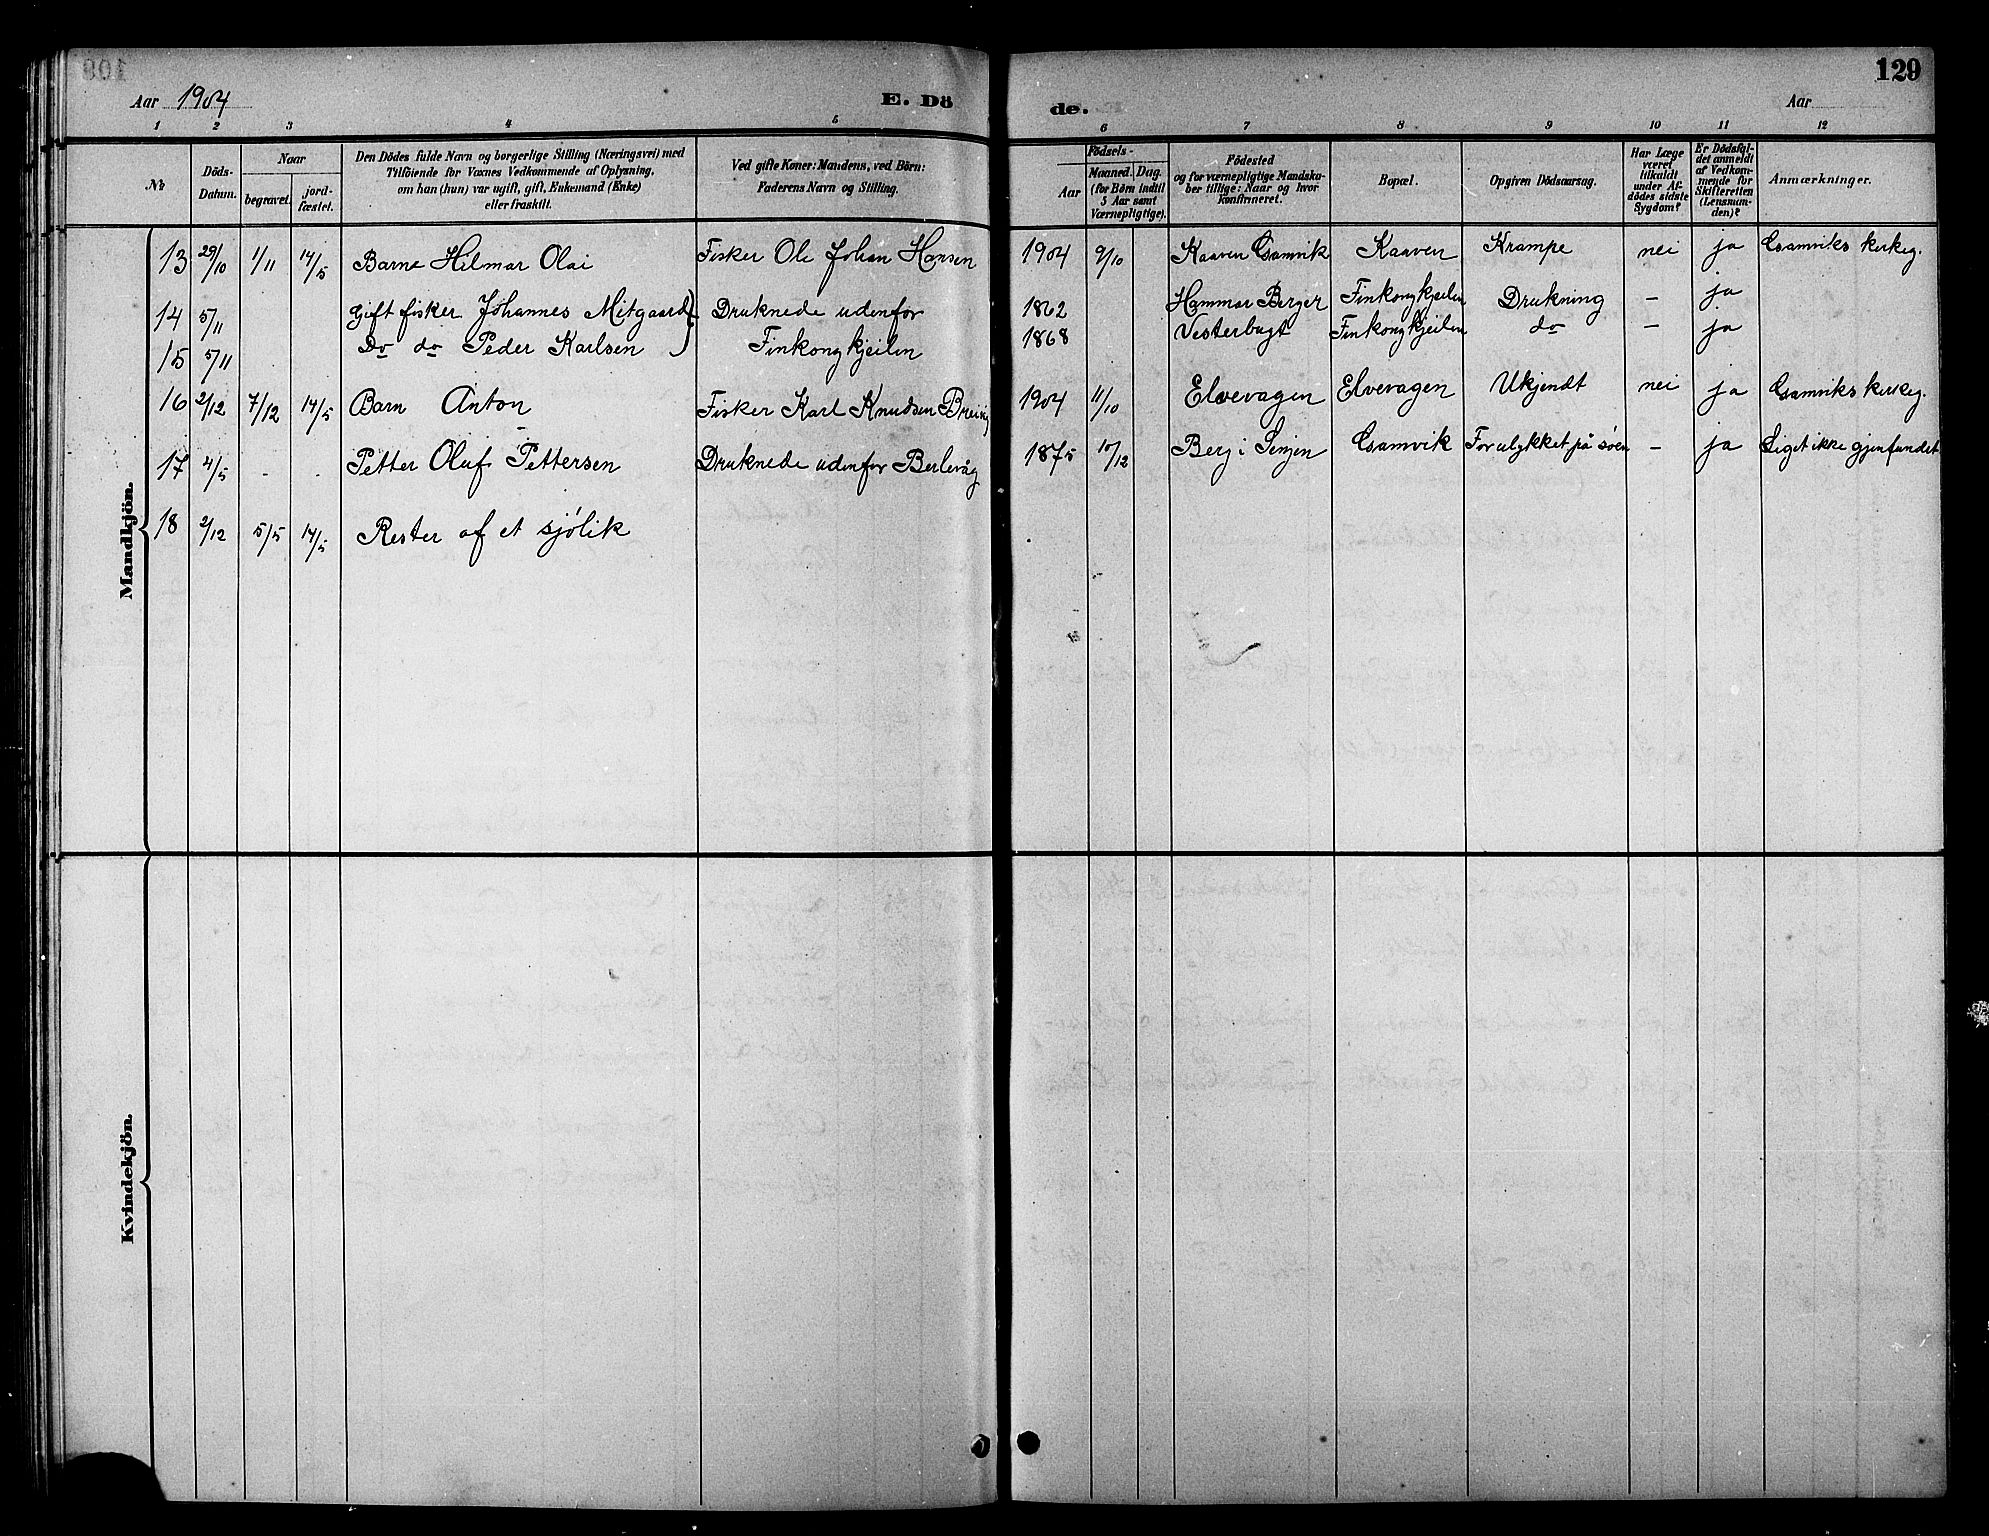 129
Aar 1904
E. Dö
de.
Aar
1 2 3 4 5 6 7 8 9 10 11 12
№
Döds-
Datum.
Naar
begravet.
jord-
fæstet.
Den Dödes fulde Navn og borgerlige Stilling (Næringsvei) med
Tilföiende for Voxnes Vedkommende af Oplysning,
om han (hun) var ugift, gift, Enkemand (Enke)
eller fraskilt.
Ved gifte Koner: Mandens, ved Börn:
Faderens Navn og Stilling.
Födsels-
Aar
Maaned. Dag.
(for Börn indtil
5 Aar samt
Værnepligtige).
Födested
og for værnepligtige Mandska-
ber tillige: Naar og hvor
konfirmeret.
Bopæl.
Opgiven Dödsaarsag.
Har Læge
været
tilkaldt
under Af-
dödes sidste
Sygdom?
Er Dödsfal-
det anmeldt
af Vedkom-
mende for
Skifteretten
(Lensman-
den)?
Anmærkninger.
Mandkjön.
13 29/10 1/11 14/5 Barne Hilmar Olai Fisker Ole Johan Hansen 1904 9/10 Kaaven Gamvik Kaaven Krampe nei ja Gamviks kirkeg.
14 5/11 Gift fisker Johannes Mitgaard Druknede udenfor 1862 Hammar Berger Finkongkjeilen Drukning - ja
15 5/11 Do do Peder Karlsen Finkongkjeilen 1868 Vesterbugt Finkongkjeilen do - ja
16 2/12 7/12 14/5 Barn Anton Fisker Karl Knudsen Breivig 1904 11/10 Elvevagen Elvevagen Ukjendt nei ja Gamviks kirkeg.
17 4/5 - - Petter Oluf Pettersen Druknede udenfor Berlevåg 1875 10/12 Berg i Senjen Gamvik Forulykket på søen - ja Liget ikke gjenfundet
18 2/12 5/5 14/5 Rester af et sjölik
Kvindekjön.